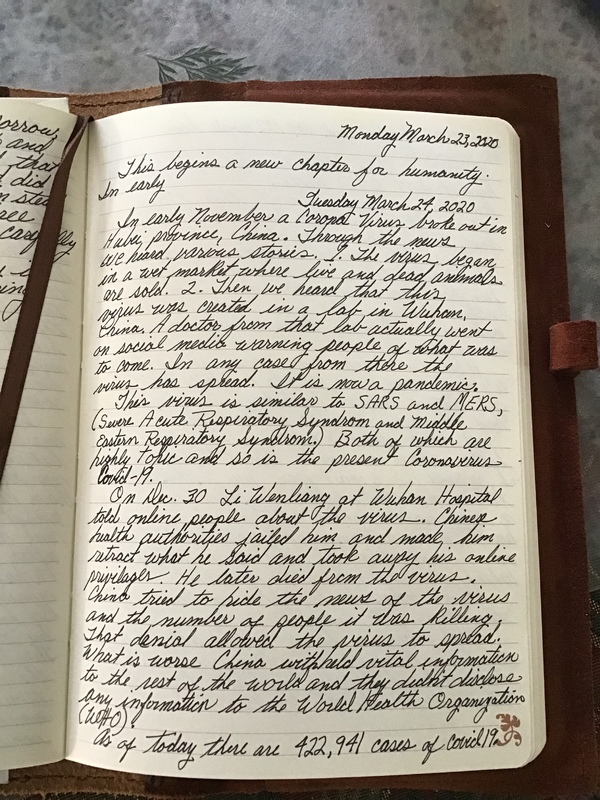 orrow,
and
that
did
stea
ree
carefully
Monday March 23, 2020
This begins a new chapter for humanity.
In early
Tuesday March 24, 2020
In early November a Corona Virus broke out in
Hubei province, China. Through the news
we heard various stories. 1. The virus began
in a wet market where live and dead animals
are sold. 2. Then we heard that this
virus was created in a lab in Wuhan,
China. A doctor from that lab actually went
on social media warning people of what was
to come. In any case from there the
virus has spread. It is now a pandemic.
This virus is similar to SARS and MERS,
(Severe Acute Respiratory Syndrom and Middle
Eastern Respiratory Syndrom.) Both of which are
highly toxic and so is the present Coronavirus
Covid-19.
On Dec. 30 Li Wenliang at Wuhan Hospital
told online people about the virus. Chinese
health authorities jailed him and made him
retract what he said and took away his online
privilages. He later died from the virus.
China tried to hide the news of the virus
and the number of people it was killing,
That denial allowed the virus to spread.
What is worse China withheld vital information
to the rest of the world and they didn't disclose
any information to the World Health Organization
(WHO)
As of today there are 422,941 cases of Covid 19.